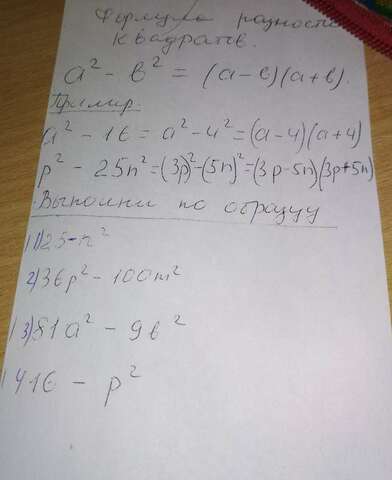 Формула разности
квадратов.
a² - b² = (a-b)(a+b).
Пример.
a² - 16 = a² - 4² = (a-4)(a+4)
p² - 25n² = (3p)² - (5n)² = (3p-5n)(3p+5n)
Выполни по образцу
1) 25-n²
2) 36p² - 100m²
3) 81a² - 9b²
4) 16 - p²